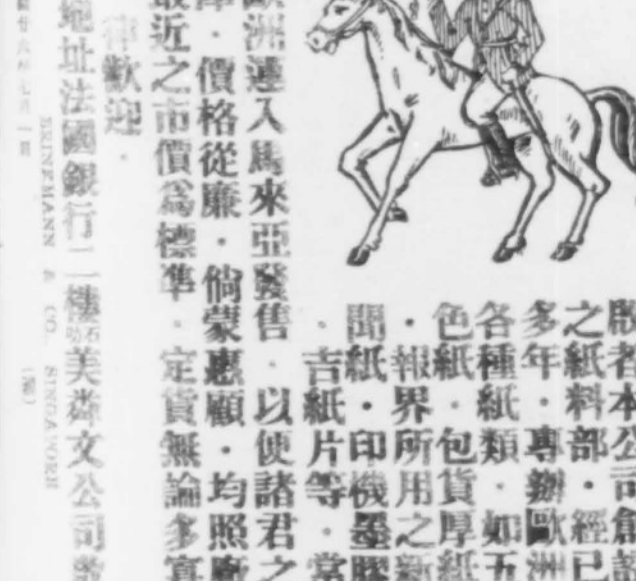 啟者本公司創設
之紙料部·經已
多年·專辦歐洲
各種紙類·如五
色紙·包貨厚紙
·報界所用之新
聞紙·印機墨膠
·吉紙片等·常
歐洲運入馬來亞發售·以便諸君之
·價格從廉·倘蒙惠顧·均照廠
最近之市價爲標準·定貨無論多寡
律歡迎·
地址法國銀行二樓
美 文公司
BRINKMANN & CO., SINGAPORE
七月一日